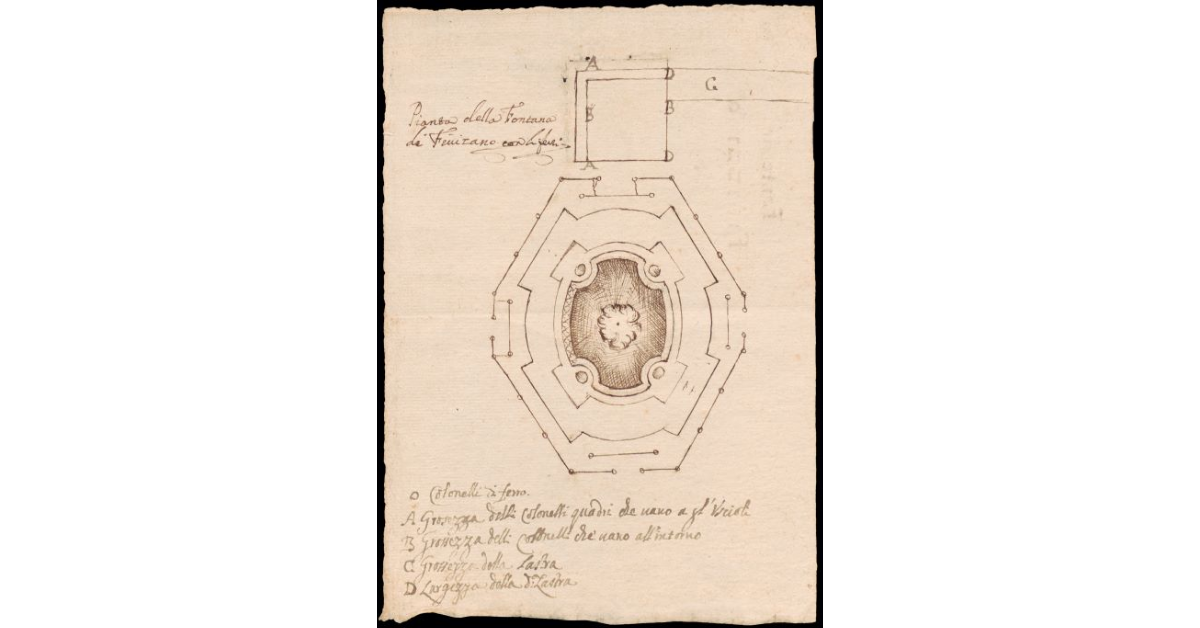 A
D
G
Pianta della Fontana
B
B
de Fivizano con li ferri
A
D
O Colonelli di ferro.
A Grossezza delli Colonelli quadri che vano a gl'Uscioli
B Grossezza delli Colonelli che vano all'intorno
C Grossezza della Lastra
D Largezza della d: Lastra